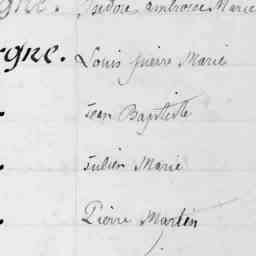 gne. Isidore ambroise Marie
rgne. Louis pierre Marie
Jean Baptiste
Julien Marie
Pierre Martin